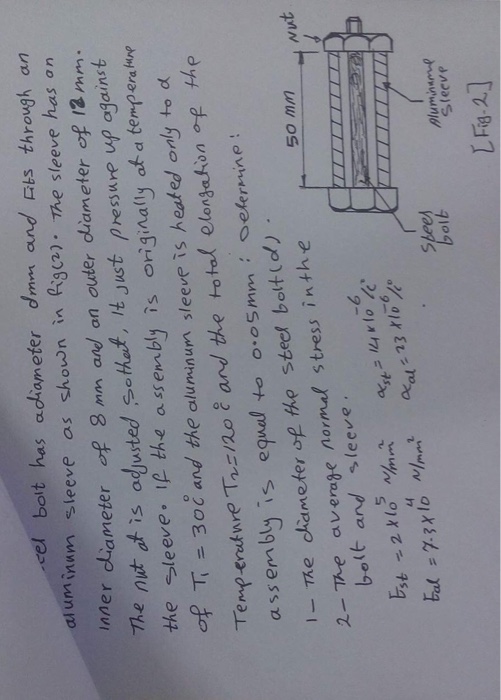 eel bolt has a diameter dmm and fits through an
aluminum sleeve as shown in fig(2). The sleeve has an
inner diameter of 8 mm and an outer diameter of 12 mm.
The nut at is adjusted so that, it just pressure up against
the sleeve. If the assembly is originally at a temperature
of T₁ = 30c̊ and the aluminum sleeve is heated only to a
Temperature T₂=120 c̊ and the total elongation of the
assembly is equal to 0.05mm; Determine:
1- The diameter of the steel bolt (d).
2- The average normal stress in the
bolt and sleeve.
Est = 2 x 10⁵ N/mm² αst = 14 x 10⁻⁶ /c̊
Eal = 7.3 x 10⁴ N/mm² αal = 23 x 10⁻⁶ /c̊
50 mm
Nut
Steel
bolt
Aluminume
Sleeve
[Fig. 2]